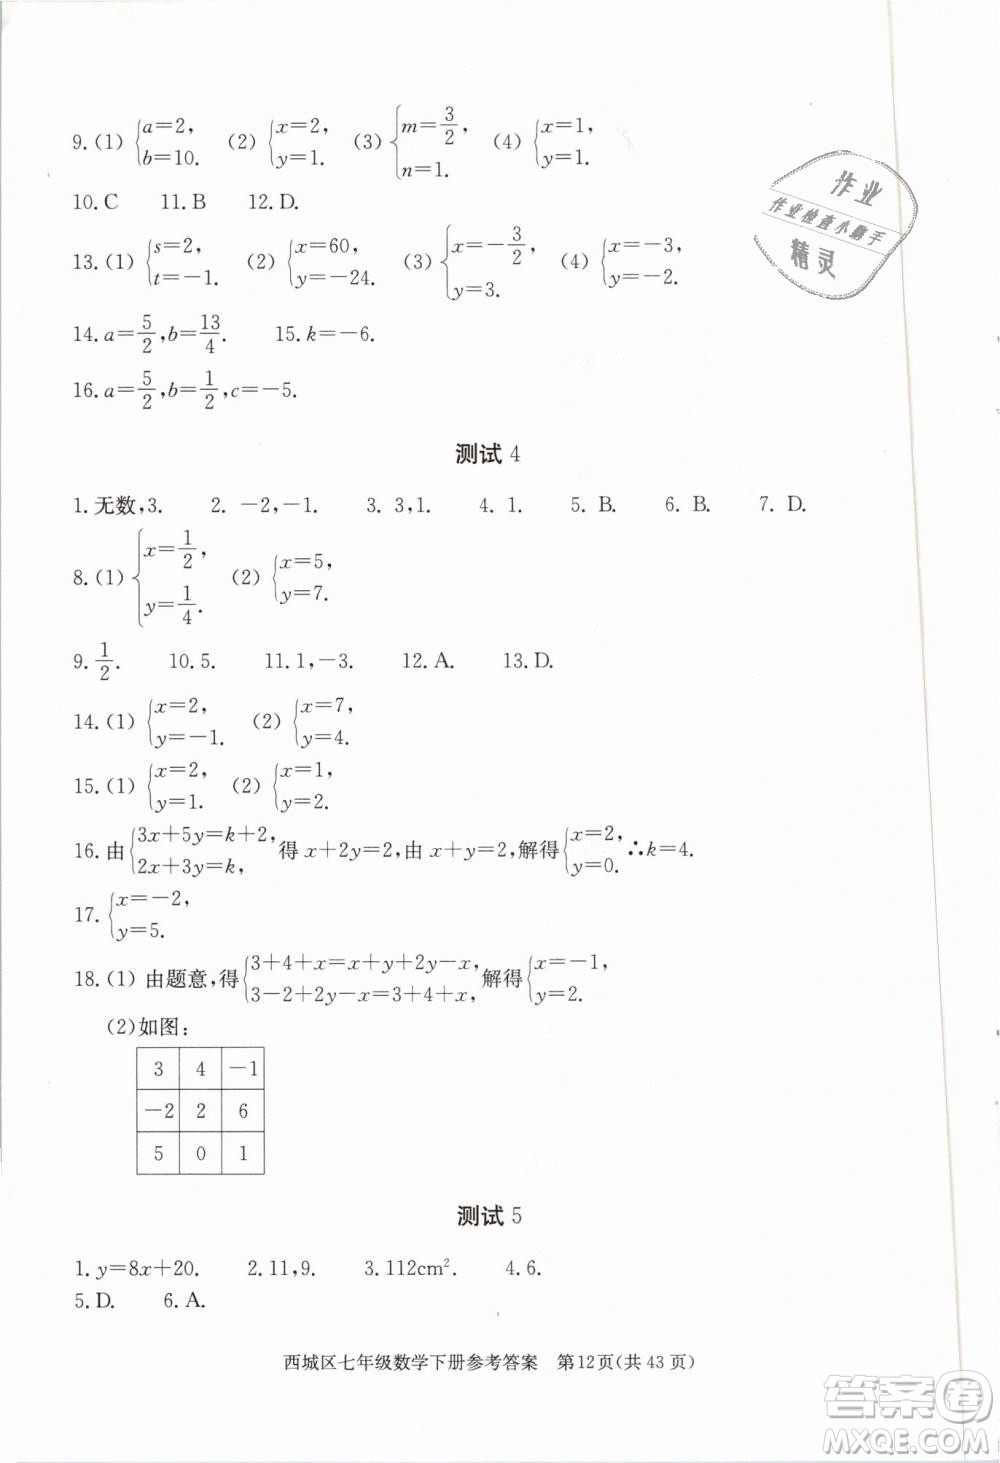 9.(1) {a=2, b=10. (2) {x=2, y=1. (3) {m=3/2, n=1. (4) {x=1, y=1.
10. C 11. B 12. D.
13.(1) {s=2, t=-1. (2) {x=60, y=-24. (3) {x=-3/2, y=3. (4) {x=-3, y=-2.
14. a=5/2, b=13/4. 15. k=-6.
16. a=5/2, b=1/2, c=-5.
测试 4
1. 无数,3. 2. -2,-1. 3. 3,1. 4. 1. 5. B. 6. B. 7. D.
8.(1) {x=1/2, y=1/4. (2) {x=5, y=7.
9. 1/2. 10. 5. 11. 1,-3. 12. A. 13. D.
14.(1) {x=2, y=-1. (2) {x=7, y=4.
15.(1) {x=2, y=1. (2) {x=1, y=2.
16. 由{3x+5y=k+2, 2x+3y=k, 得 x+2y=2,由 x+y=2,解得{x=2, y=0. ∴k=4.
17. {x=-2, y=5.
18.(1) 由题意,得{3+4+x=x+y+2y-x, 3-2+2y-x=3+4+x, 解得{x=-1, y=2.
(2)如图:
3 4 -1
-2 2 6
5 0 1
测试 5
1. y=8x+20. 2. 11,9. 3. 112cm². 4. 6.
5. D. 6. A.
西城区七年级数学下册参考答案 第12页(共 43 页)
作业
作业检查小助手
精灵
答案圈
MXQE.COM